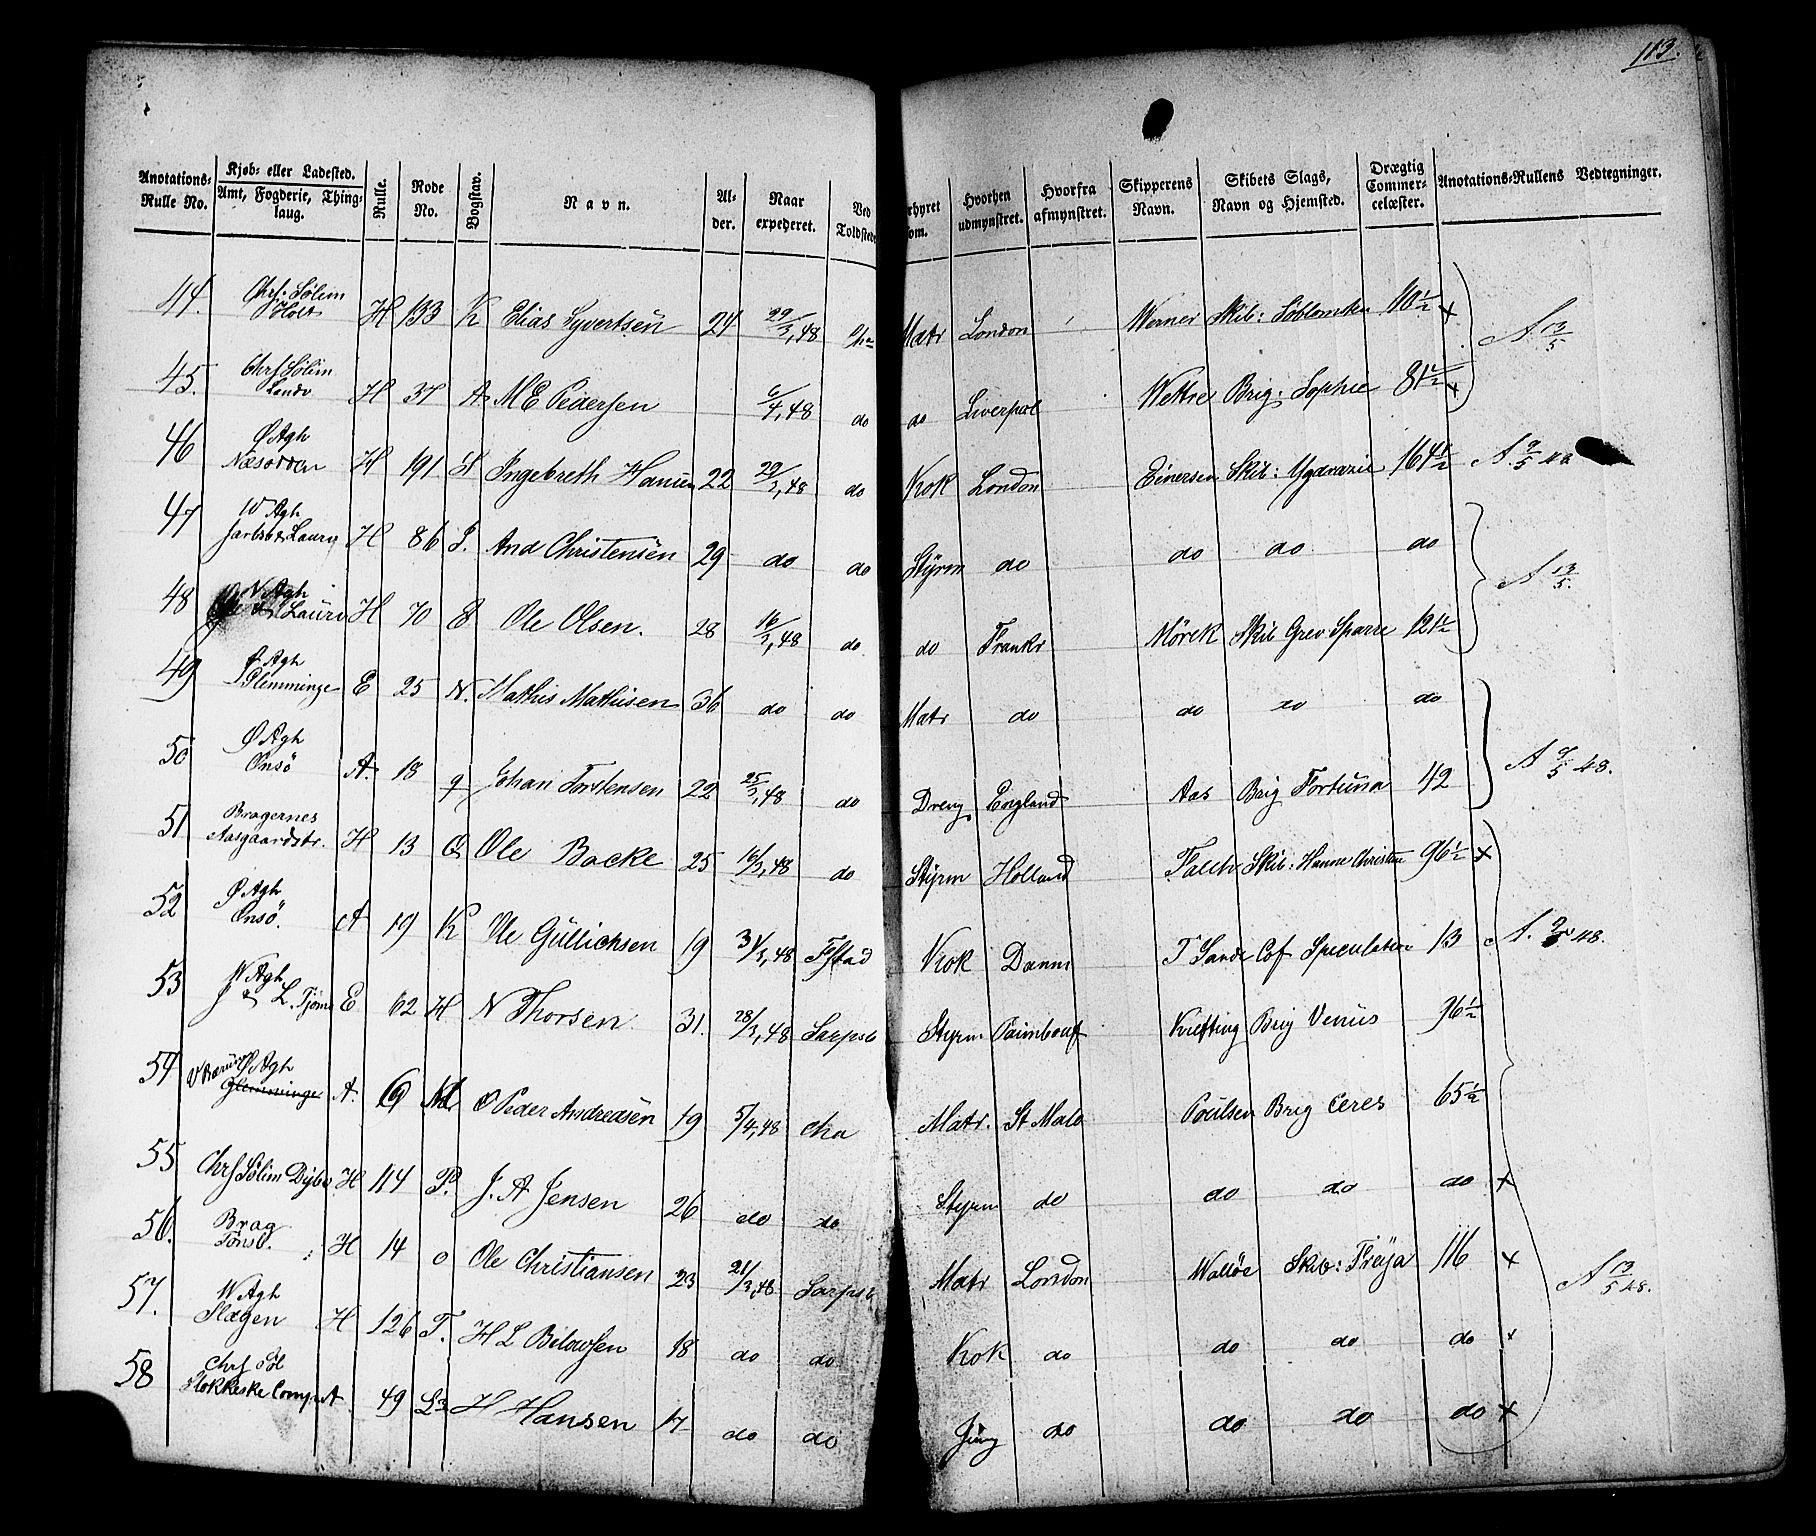 113.
Anotations-Rulle No. Kjøb- eller Ladested. Amt, Fogderie, Thinglaug. Rulle. Rode No. Bogstav. Navn. Alder. Naar expederet. Ved Toldsted Forhyret som. Hvorhen udmynstret. Hvorfra afmynstret. Skipperens Navn. Skibets Slags, Navn og Hjemsted. Drægtig Commercelæster. Anotations-Rullens Vedtegninger.
44. Chrs: Sølim Holt H 133 K Elias Syvertsen 24 29/3,48 Cha Matr London Werner Skib: 110 1/2 x A 13/5
45. Chrs Sølim H 37 A M E Pedersen /4,48 do do Liverpool Wettre Brig: Sophie 81 1/2 x
46 Ø Agh Næsodden H 191 Ingebreth Hansen 22 29/3,48 do Kok London Einersen Skib: 164 1/2 A 9/5 48
47 V Agh Jarlsb & Laurv H 86 And Christensen 29 do do Styrm do do do do A 13/5.
48 V Agh & Laurv H 70 Ole Olsen. 28 16/3,48 do do Frankr Mörck Skib Grev Sparre 121 1/2
49 Ø Agh Glemminge E 25 N. Mathis Mathisen 36 do do Matr do do do do A 9/5 48.
50 Ø Agh Onsö A. 18 Johan Torstensen 22 25/3,48 do Dreng England Aas Brig Fortuna 42
51 Bragernes Aasgaardstr. H 13 Ole Backe 25 16/3,48 do Styrm Holland Falch Skib: Hanne Christine 96 1/2 x
52 Ø Agh Onsö. A 19 K Ole Gullichsen 19 31/3,48 Fstad Kok Danm T Sande Speculation 13 A. 9/5 48.
53 V Agh J & L. Tjömö E 62 H N Thorsen 31. 28/3,48 Sarpsb Styrm. Paimbouf Krefting Brig Venus 96 1/2
54 Ø Agh Glemminge A. 9 Peder Andreasen 19 5/4,48 cha Matr. St Malo Poulsen Brig Ceres 65 1/2
55 Chrs Sølim H 114 P. J. A Jensen 26 do do Styrm do do do do x
56. Brag Tönsb. H 14 o Ole Christiansen 23 21/3,48 Sarpsb Matr London Walløe Skib: Fröja 116 x A 13/5 48.
57. V Agh Slagen H 126 T. H L 18 do do Kok do do do do x
58 Chrs Søl Stokkeske Comp A 49 L3 H Hansen 17 do do Jung do do do do x